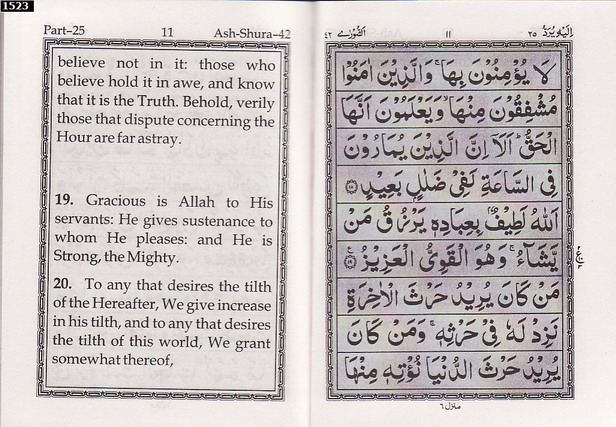 1523
Part-25 11 Ash-Shura-42
believe not in it: those who
believe hold it in awe, and know
that it is the Truth. Behold, verily
those that dispute concerning the
Hour are far astray.
19. Gracious is Allah to His
servants: He gives sustenance to
whom He pleases: and He is
Strong, the Mighty.
20. To any that desires the tilth
of the Hereafter, We give increase
in his tilth, and to any that desires
the tilth of this world, We grant
somewhat thereof,
اليه يرد ٢٥ ١١ الشورى ٤٢
لَا يُؤْمِنُوْنَ بِهَا ۚ وَالَّذِيْنَ اٰمَنُوْا
مُشْفِقُوْنَ مِنْهَا ۙ وَيَعْلَمُوْنَ اَنَّهَا
الْحَقُّ ؕ اَلَاۤ اِنَّ الَّذِيْنَ يُمَارُوْنَ
فِى السَّاعَةِ لَفِىْ ضَلٰلٍۭ بَعِيْدٍ ۝١٨
اَللّٰهُ لَطِيْفٌۢ بِعِبَادِهٖ يَرْزُقُ مَنْ
يَّشَآءُ ۚ وَهُوَ الْقَوِىُّ الْعَزِيْزُ ۝١٩
مَنْ كَانَ يُرِيْدُ حَرْثَ الْاٰخِرَةِ
نَزِدْ لَهٗ فِىْ حَرْثِهٖ ۚ وَمَنْ كَانَ
يُرِيْدُ حَرْثَ الدُّنْيَا نُؤْتِهٖ مِنْهَا
منزل ٦